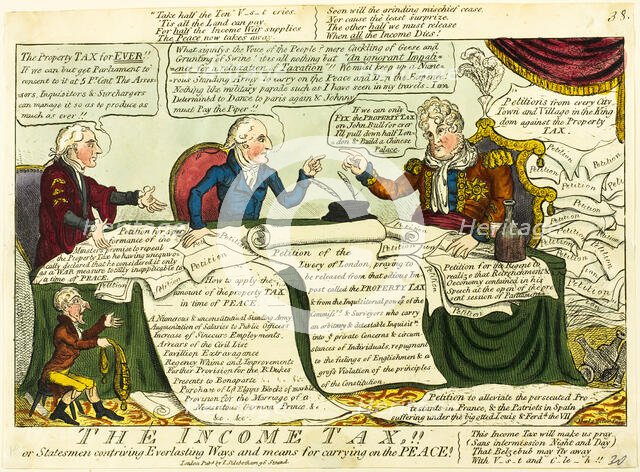 "Take half the Ten V_s_t cries,
'Tis all the Land can pay,
For half the Income War supplies
The Peace now takes away.
Soon will the grinding mischief cease,
Nor cause the least surprize,
The other half we must release
When all the Income Dies!
38.
The Property TAX for EVER!!
If we can but get Parliament to
consent to it at 5 P Cent The Asses
sors, Inquisitors & Surchargers
can manage it so as to produce as
much as ever!!
What signifys the Voice of the People? mere Cackling of Geese and
Grunting of Swine! it is all nothing but "an ignorant Impati-
ence for a relaxation of Taxation"!! We must keep up a Nume-
rous Standing Army to carry on the Peace and D__n the Expence!
Nothing like military parade such as I have seen in my travels. I am
Determined to Dance to paris again & Johnny
must Pay the Piper!!
If we can only
FIX the PROPERTY TAX
on John Bull for ever
I'll pull down half Lon-
don & Build a Chinese
Palace
Petitions from every City
Town and Village in the King
dom against the Property
TAX.
Petition
Petition
Petition
Petition
Petition
Petition
Petition
Petition
Petition for a per
formance of the
Ministers promise to repeal
the Property Tax he having unequivo-
cally declared that he considered it only
as a WAR measure totally inapplicable to
a time of PEACE!
How to apply the
amount of the property TAX
in time of PEACE
A Numerous & unconstitutional Standing Army
Augmentation of Salaries to Public Officers
Increase of Sinecure Employments,
Arrears of the Civil List
Pavilion Extravagance
Regency Whims and Improvements
Further Provision for the R. Dukes
Presents to Bonaparte &c &c &c
Purchase of Ld Elgins Blocks of marble
Provision for the Marriage of a
Necessitous German Prince &c
&c &c
Petition of the
Livery of London, praying to
be released from that odious Im
post called the PROPERTY TAX
& from the Inquisitorial power of the
Commiss & Surveyers who carry
an arbitrary & detestable Inquisit
into ye private Concerns & circum
stances of Individuals, repugnant
to the fielings of Englishmen & a
gross Violation of the principles
of the Constitution
Petition for the Regent to
realize that Retrenchment &
Oeconomy contained in his
Speech at the open of the pre
sent session of Parliament
Petition to alleviate the persecuted Pro
testants in France, & the Patriots in Spain
suffering under the biggotted Louis & Ferd the VII
THE INCOME TAX,!!
or Statesmen contriving Everlasting Ways and means for carrying on the PEACE!
London Pub by J. Sidebotham 96 Strand
This Income Tax will make us pray,
Sans intermission Night and Day
That Belzebub may fly away
With V_s_t and C_le_h!!
Heritage